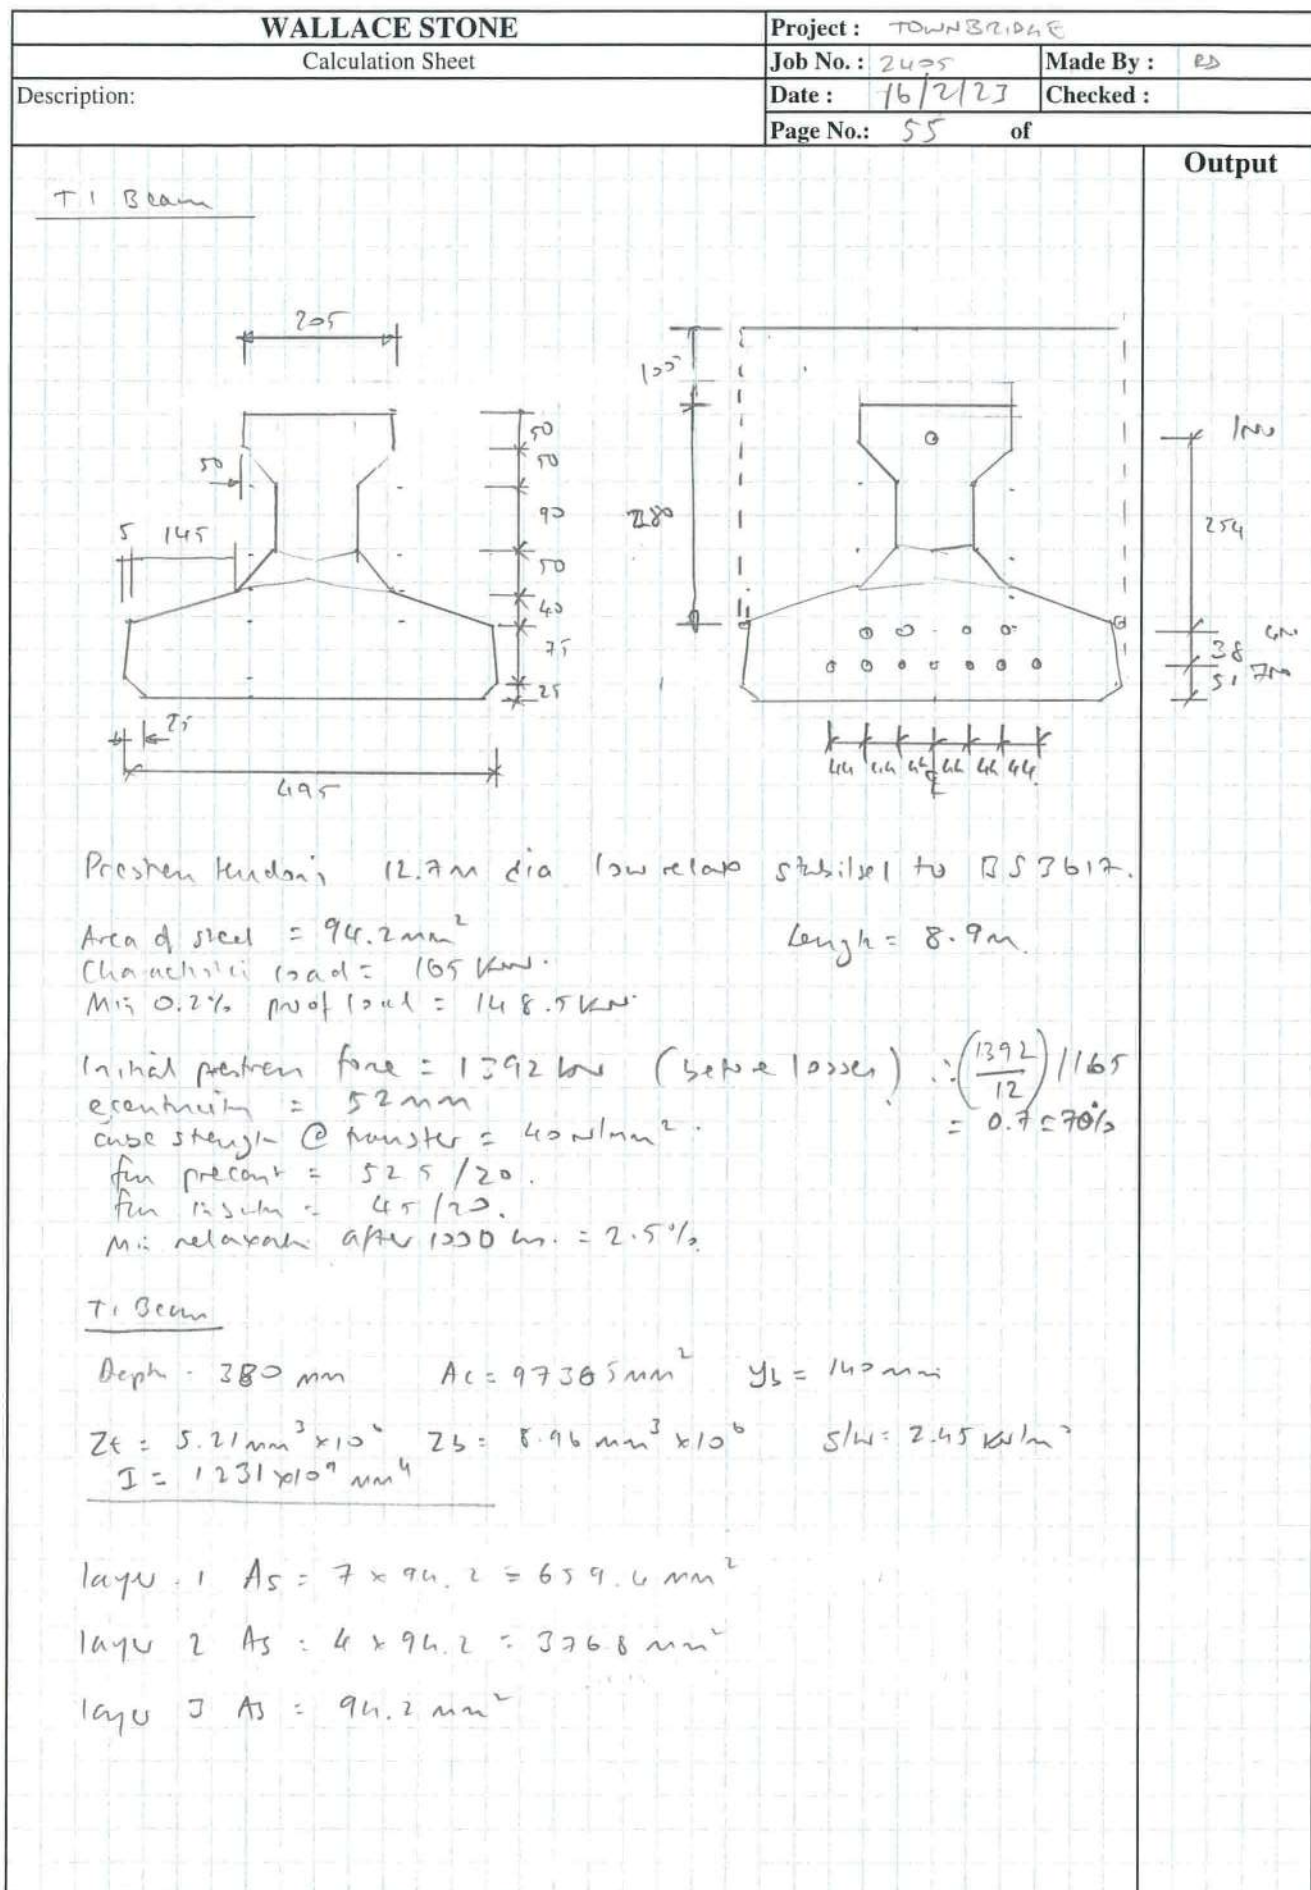 WALLACE STONE
Calculation Sheet
Description:
Project : TOWNBRIDGE
Job No. : 2405
Made By : RD
Date : 16/2/23
Checked :
Page No.: 55 of
Output
T1 Beam
205
50
50
50
90
5 145
50
40
75
25
25
495
105
280
1no
254
4no
38
7no
51
44 44 44 44 44 44
Prestress tendons 12.7mm dia low relax stabilised to BS 3617.
Area of steel = 94.2mm²
Length = 8.9m.
Characteristic load = 165 kN.
Min 0.2% proof load = 148.5kN
Initial prestress force = 1392 kN (before losses) ∴ (1392/12)/165
= 0.7 = 70%
eccentricity = 52mm
cube strength @ transfer = 40 N/mm².
fcu precast = 52.5/20.
fcu insitu = 45/20.
Min relaxation after 1000 hrs. = 2.5%
T1 Beam
Depth - 380 mm Ac = 97365mm² yb = 140mm
Zt = 5.21mm³ x10⁶ Zb = 8.96 mm³ x10⁶ s/w = 2.45 kN/m
I = 1231x10⁹ mm⁴
layer 1 As = 7 x 94.2 = 659.4 mm²
layer 2 As = 4 x 94.2 = 376.8 mm²
layer 3 As = 94.2 mm²